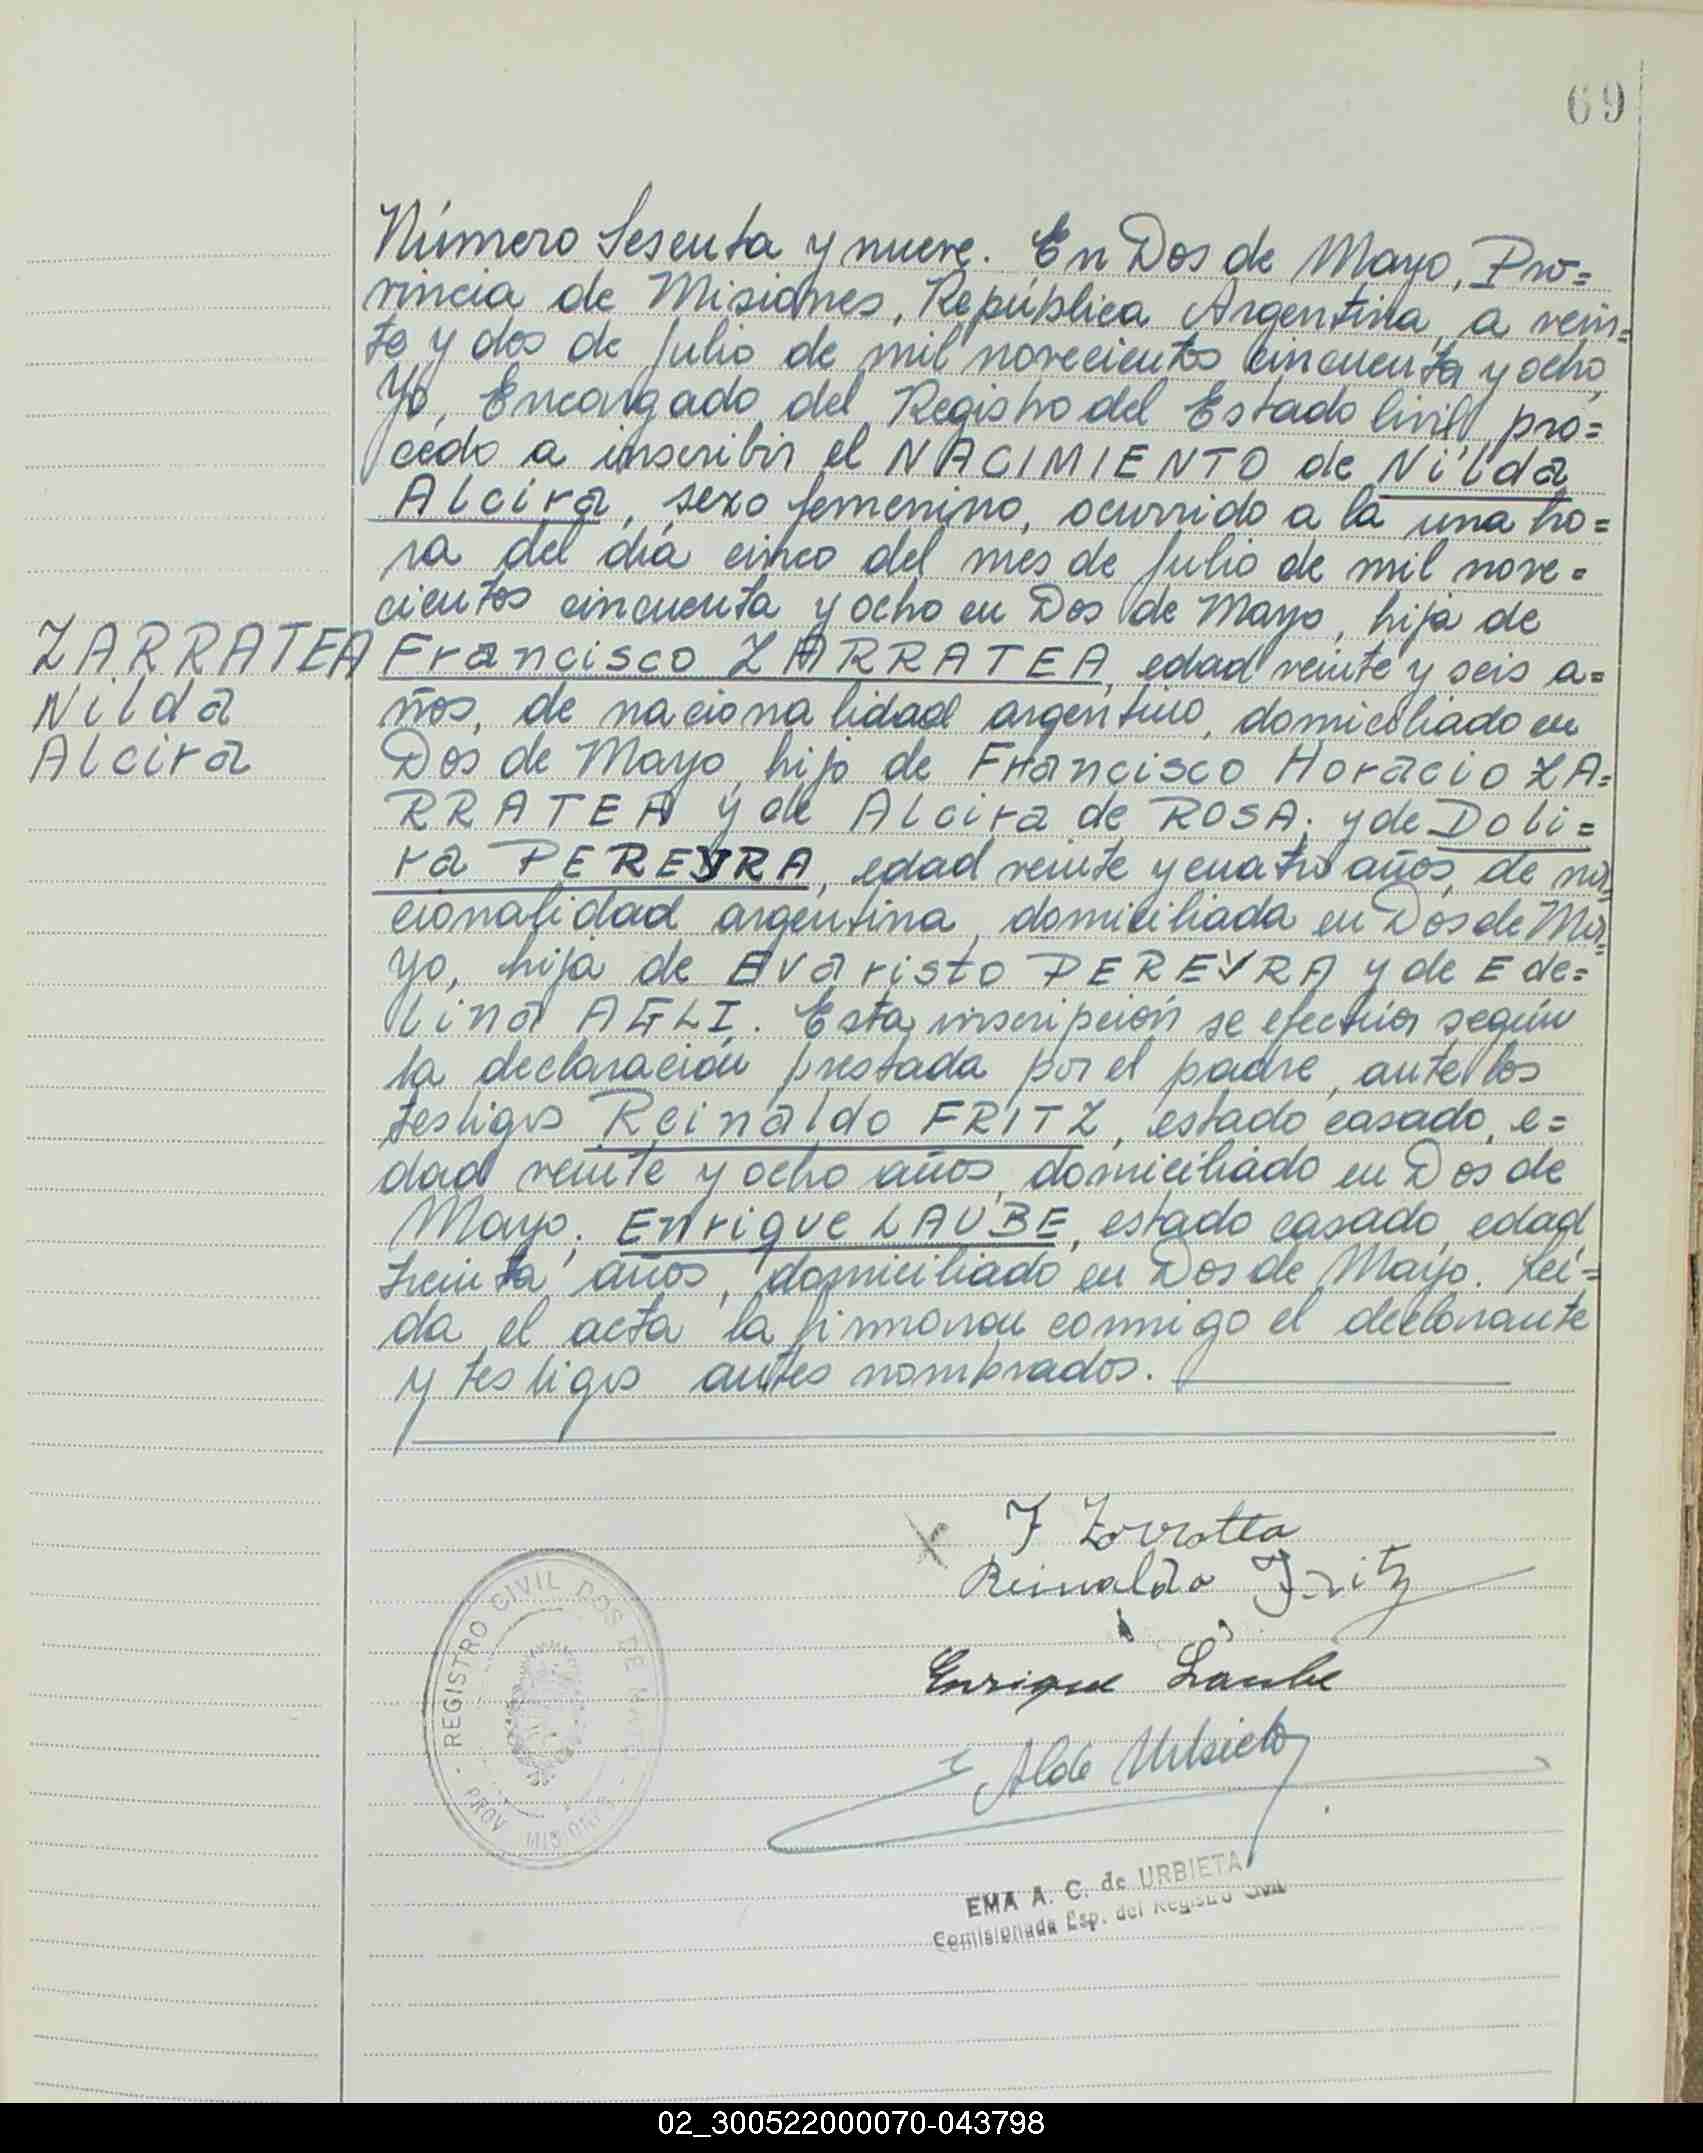 69
Número Sesenta y nueve. En Dos de Mayo, Pro=
vincia de Misiones, República Argentina, a vein=
te y dos de Julio de mil novecientos cincuenta y ocho,
Yo, Encargado del Registro del Estado Civil, pro=
cedo a inscribir el NACIMIENTO de Nilda
Alcira, sexo femenino, ocurrido a la una ho=
ra del día cinco del mes de Julio de mil nove=
cientos cincuenta y ocho en Dos de Mayo, hija de
ZARRATEA
Nilda
Alcira
Francisco ZARRATEA, edad veinte y seis a=
ños, de nacionalidad argentino, domiciliado en
Dos de Mayo, hijo de Francisco Horacio ZA=
RRATEA y de Alcira de ROSA; y de Doli=
ra PEREYRA, edad veinte y cuatro años, de na=
cionalidad argentina, domiciliada en Dos de Ma=
yo, hija de Evaristo PEREYRA y de Ede=
lina. Esta inscripción se efectúa según
la declaración prestada por el padre, ante los
testigos Reinaldo FRITZ, estado casado, e=
dad veinte y ocho años, domiciliado en Dos de
Mayo; Enrique LAUBE, estado casado, edad
treinta años, domiciliado en Dos de Mayo. Leí=
da el acta la firmaron conmigo el declarante
y testigos antes nombrados.
F Zarratea
Reinaldo Fritz
Enrique Laube
REGISTRO CIVIL DOS DE MAYO
PROV. MISIONES
EMA A. C. de URBIETA
Comisionada Esp. del Registro Civil
02_300522000070-043798